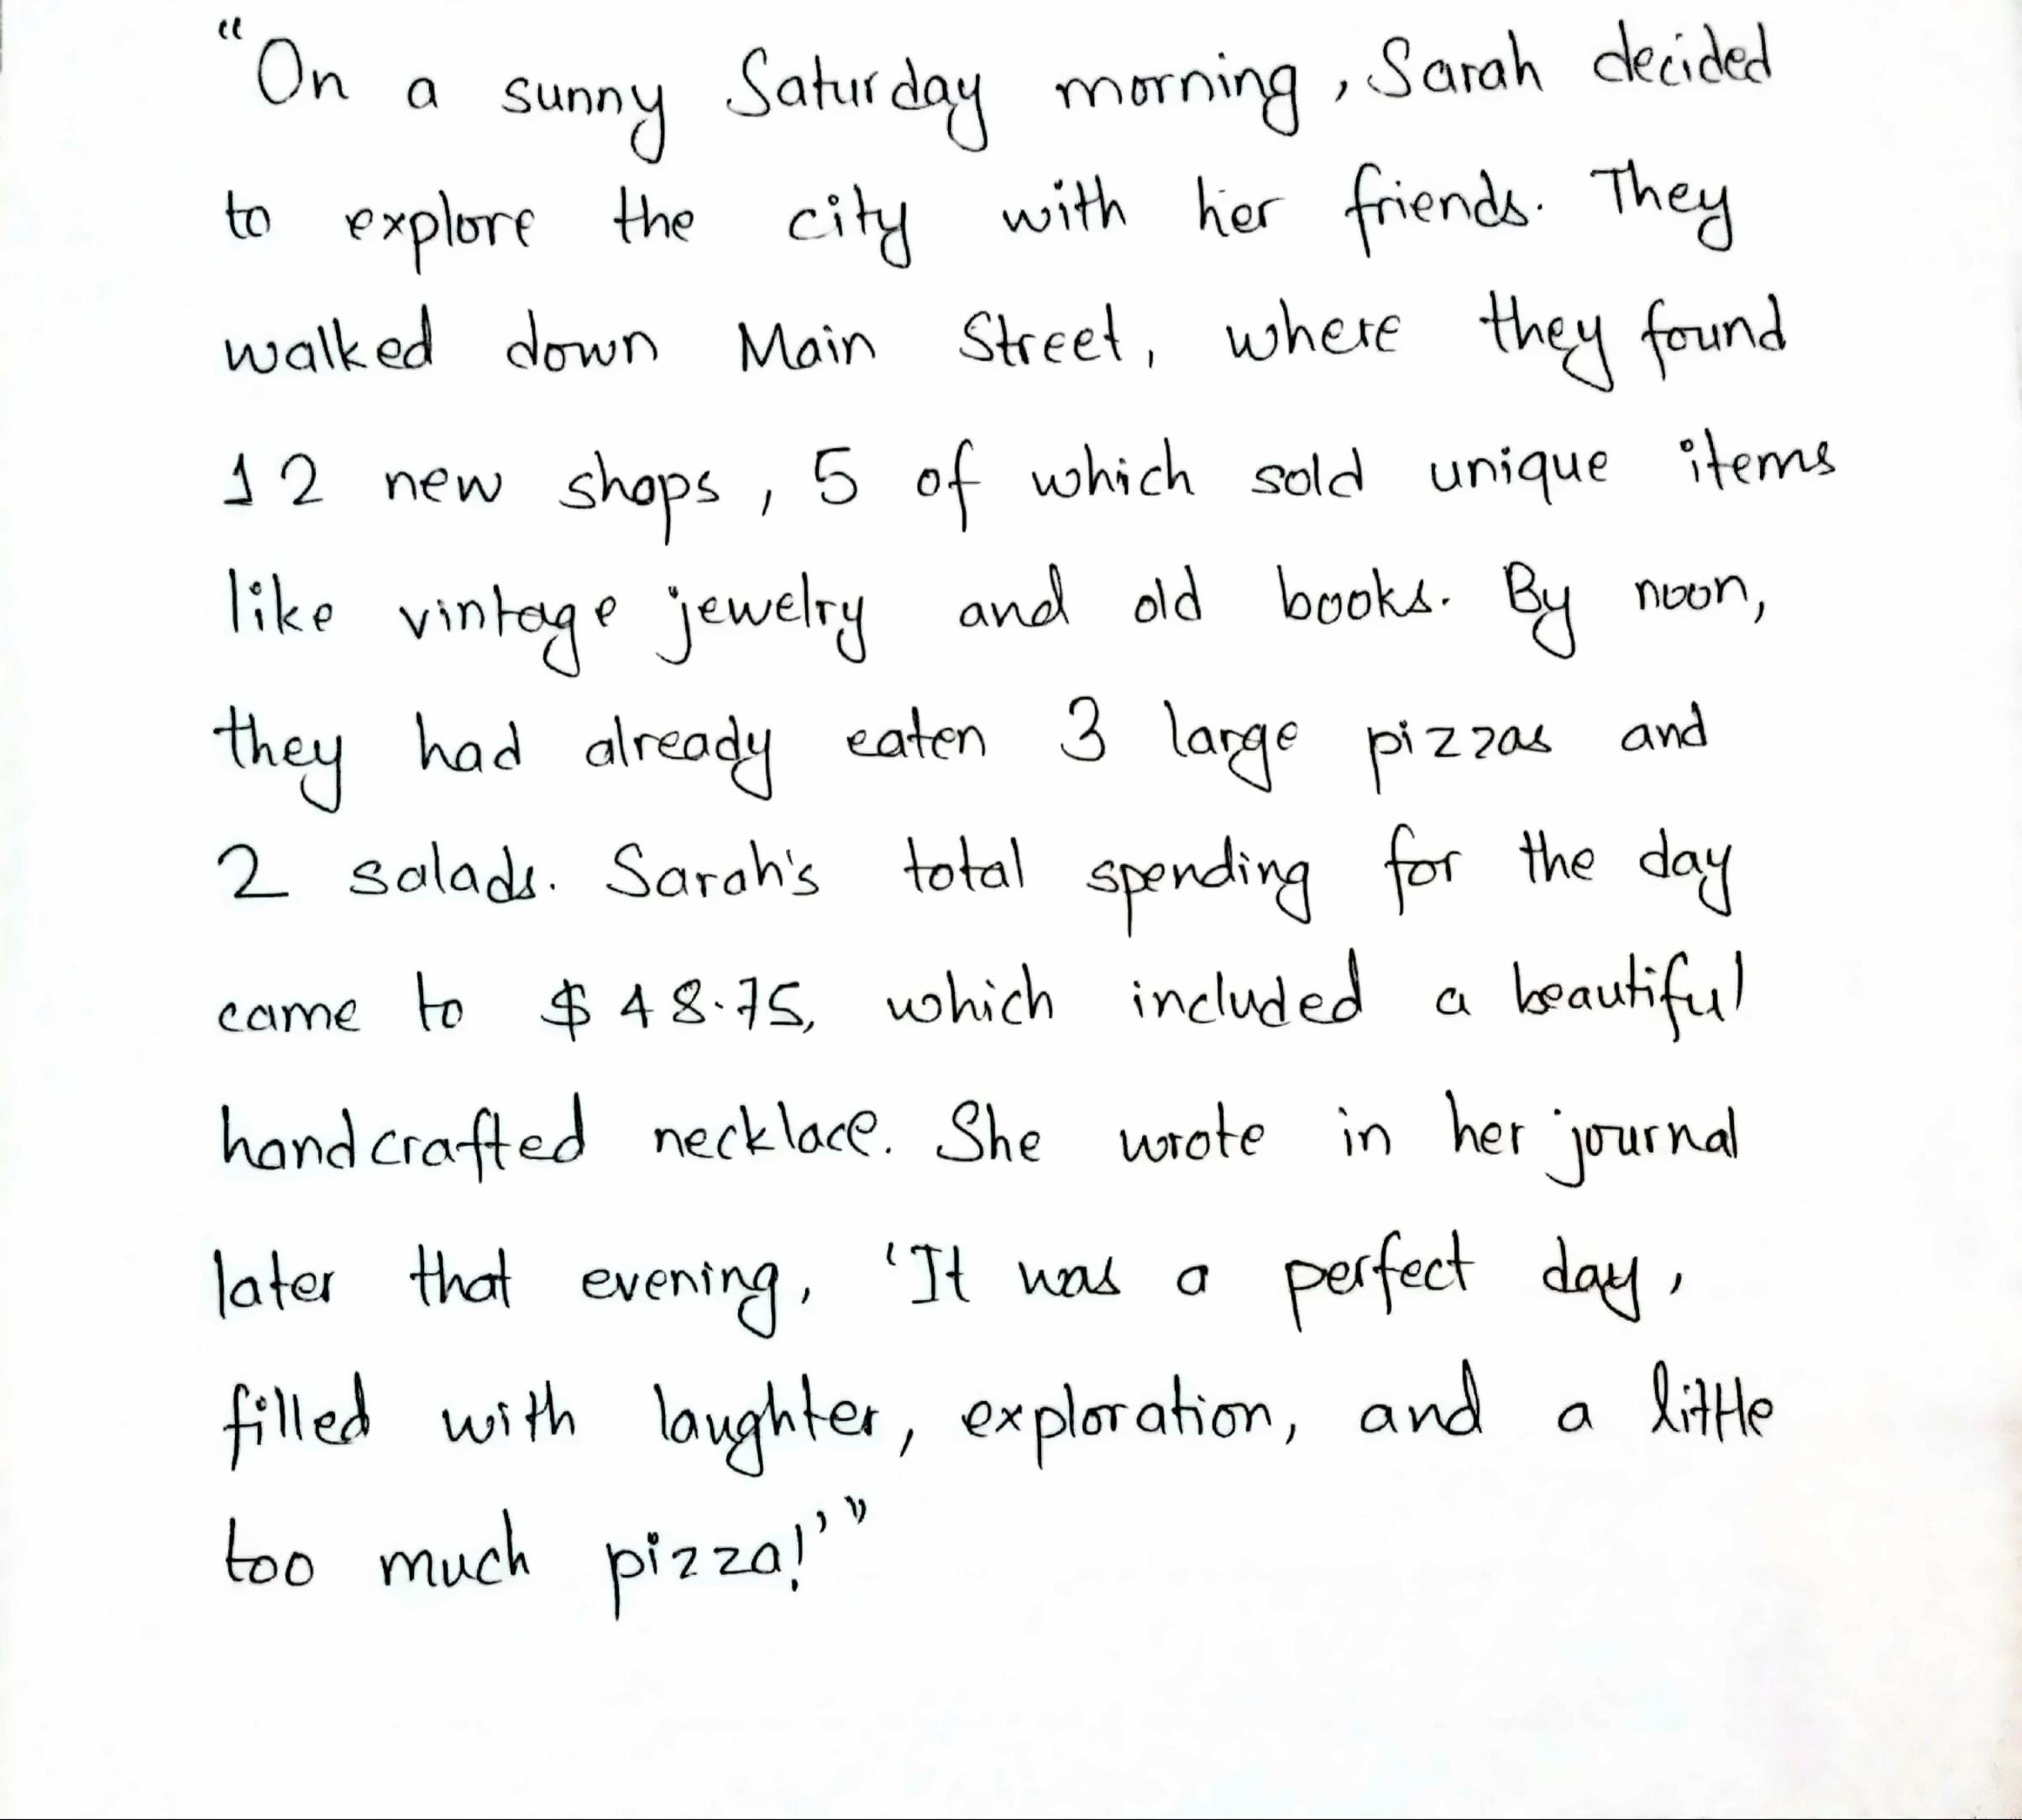 “On a sunny Saturday morning, Sarah decided
to explore the city with her friends. They
walked down Main Street, where they found
12 new shops, 5 of which sold unique items
like vintage jewelry and old books. By noon,
they had already eaten 3 large pizzas and
2 salads. Sarah's total spending for the day
came to $48.75, which included a beautiful
handcrafted necklace. She wrote in her journal
later that evening, ‘It was a perfect day,
filled with laughter, exploration, and a little
too much pizza!’”